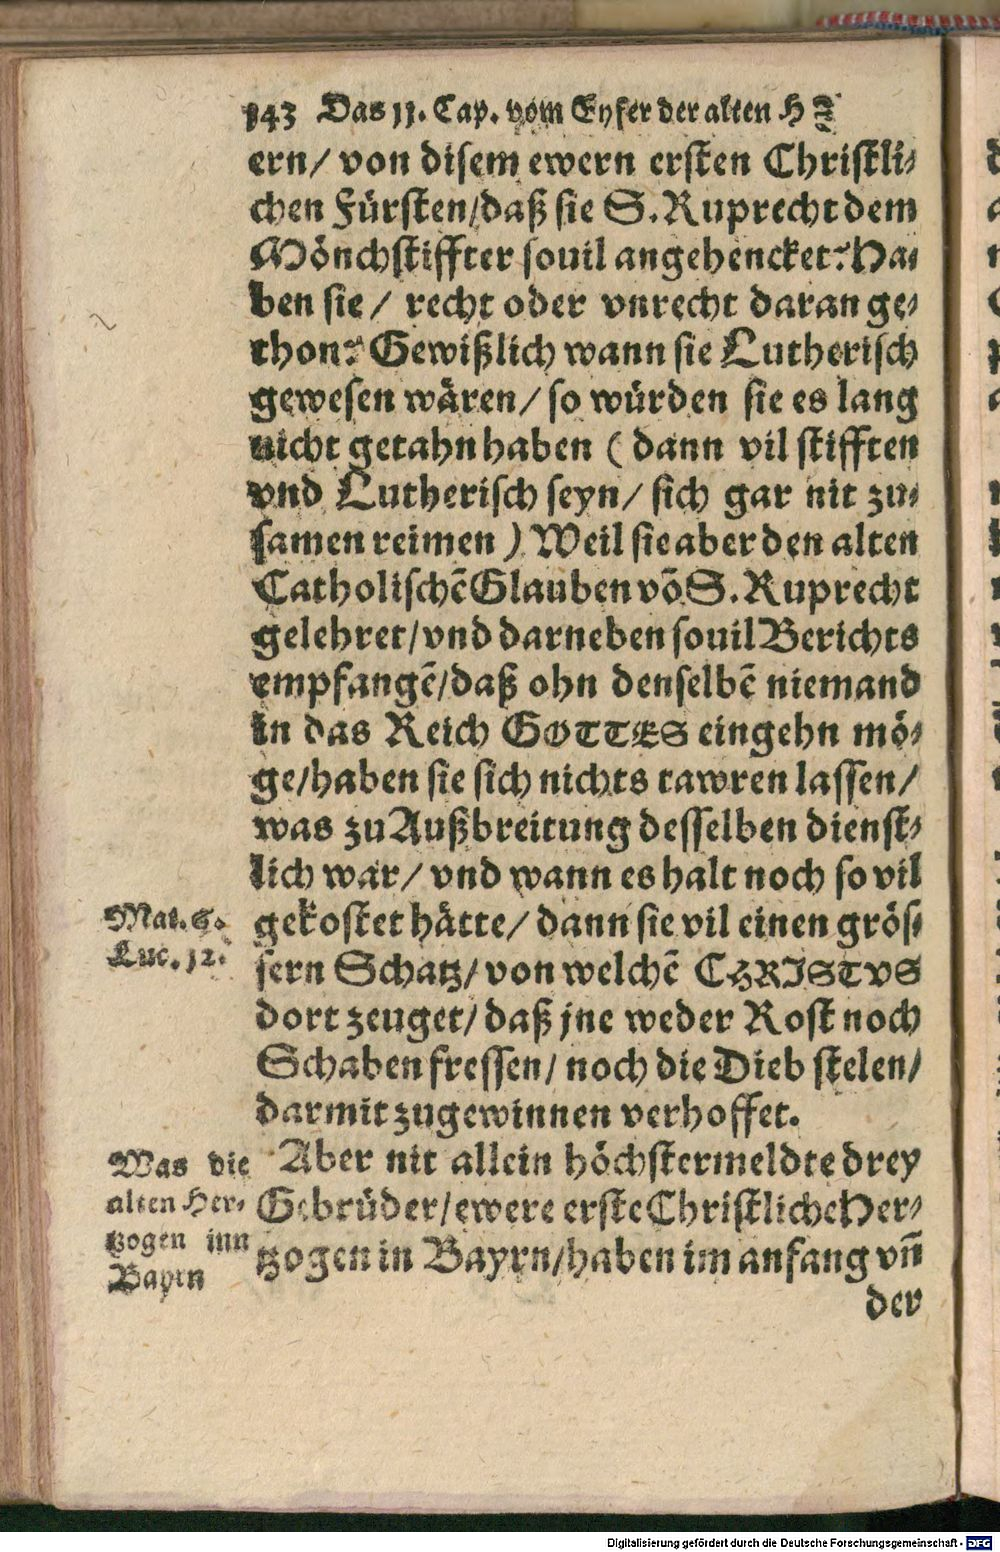 143 Das 11. Cap. vom Eyfer der alten H
ern/ von disem ewern ersten Christli⸗
chen Fürsten/daß sie S. Ruprecht dem
Mönchstiffter souil angehencket? Ha⸗
ben sie/ recht oder vnrecht daran ge⸗
thon? Gewißlich wann sie Lutherisch
gewesen wären/ so würden sie es lang
nicht getahn haben (dann vil stifften
vnd Lutherisch seyn/ sich gar nit zu⸗
samen reimen) Weil sie aber den alten
Catholischē Glauben vō S. Ruprecht
gelehret/vnd darneben souil Berichts
empfangē/daß ohn denselbē niemand
in das Reich GOTTES eingehn mö⸗
ge/haben sie sich nichts tawren lassen/
was zu Außbreitung desselben dienst⸗
lich war/ vnd wann es halt noch so vil
Mat. 6. gekostet hätte/ dann sie vil einen grös⸗
Luc. 12. sern Schatz/ von welchē CHRISTVS
dort zeuget/ daß jne weder Rost noch
Schaben fressen/ noch die Dieb stelen/
darmit zugewinnen verhoffet.
Was die Aber nit allein höchstermeldte drey
alten Her⸗ Gebrüder/ewere erste Christliche Her⸗
tzogen inn tzogen in Bayrn/haben im anfang vn̄
Bayrn
der
Digitalisierung gefördert durch die Deutsche Forschungsgemeinschaft - DFG